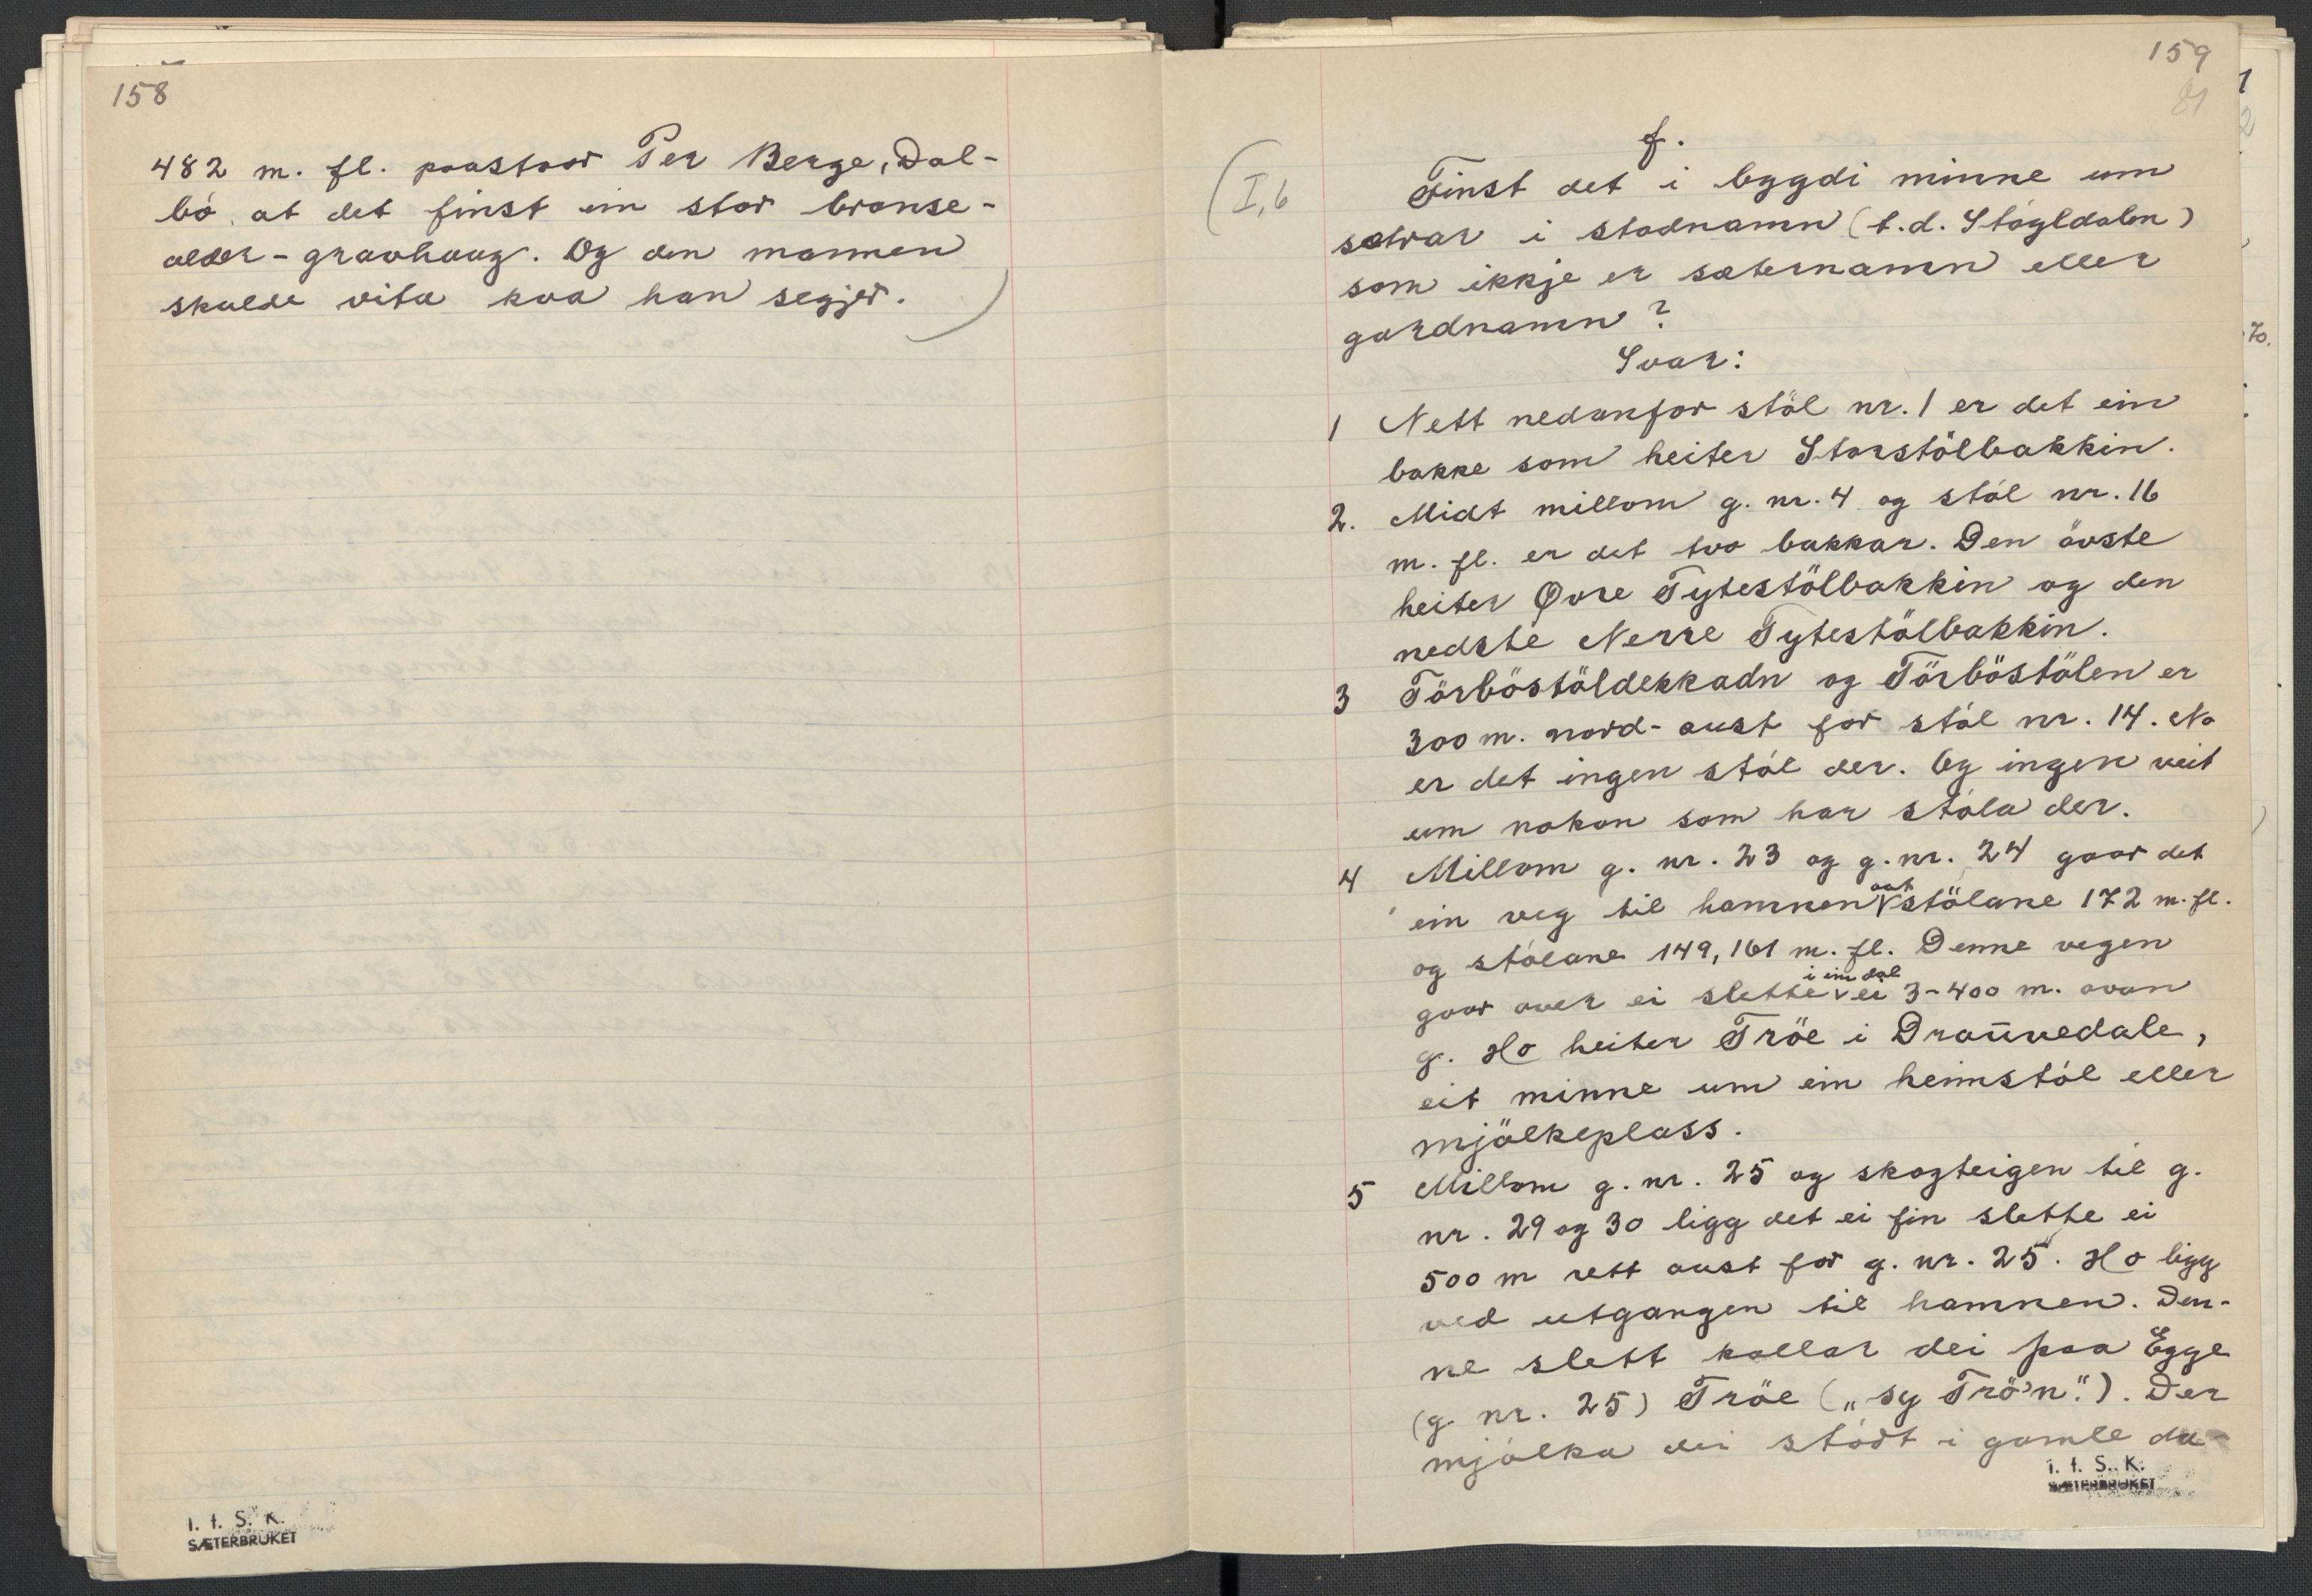 158
482 m. fl. paastaar Per Berge, Dal-
bö, at det finst ein stor bronse-
alder-gravhaug. Og den mannen
skulde vita kva han segjer.
I. f. S. K.
SÆTERBRUKET
159
81
(I,6
f.
Finst det i bygdi minne um
sætrar i stadnamn (t.d. Stöyldalen)
som ikkje er sæternamn eller
gardnamn?
Svar:
1 Nett nedanfor stöl nr. 1 er det ein
bakke som heiter Storstölbakkin.
2. Midt millom g. nr. 4 og stöl nr. 16
m. fl. er det tvo bakkar. Den övste
heiter Øvre Tytestölbakkin og den
nedste Nerre Tytestölbakkin.
3 Törböstöldekkadn og Törböstölen er
300 m. nord-aust for stöl nr. 14. No
er det ingen stöl der. Og ingen veit
um nokon som har stöla der.
4 Millom g. nr. 23 og g. nr. 24 gaar det
ein veg til hamnen aat stölane 172 m. fl.
og stölane 149, 161 m. fl. Denne vegen
gaar over ei slette i ein dal ei 3-400 m. ovan
g. Ho heiter Tröe i Draŭvedale,
eit minne um ein heimstöl eller
mjölkeplass.
5 Millom g. nr. 25 og skogteigen til g.
nr. 29 og 30 ligg det ei fin slette ei
500 m rett aust for g. nr. 25. Ho ligg
ved utgangen til hamnen. Den-
ne slett kallar dei paa Egge
(g. nr. 25) Tröe („sy Trö'n"). Der
mjölka dei stödt i gamle da-
I. f. S. K.
SÆTERBRUKET